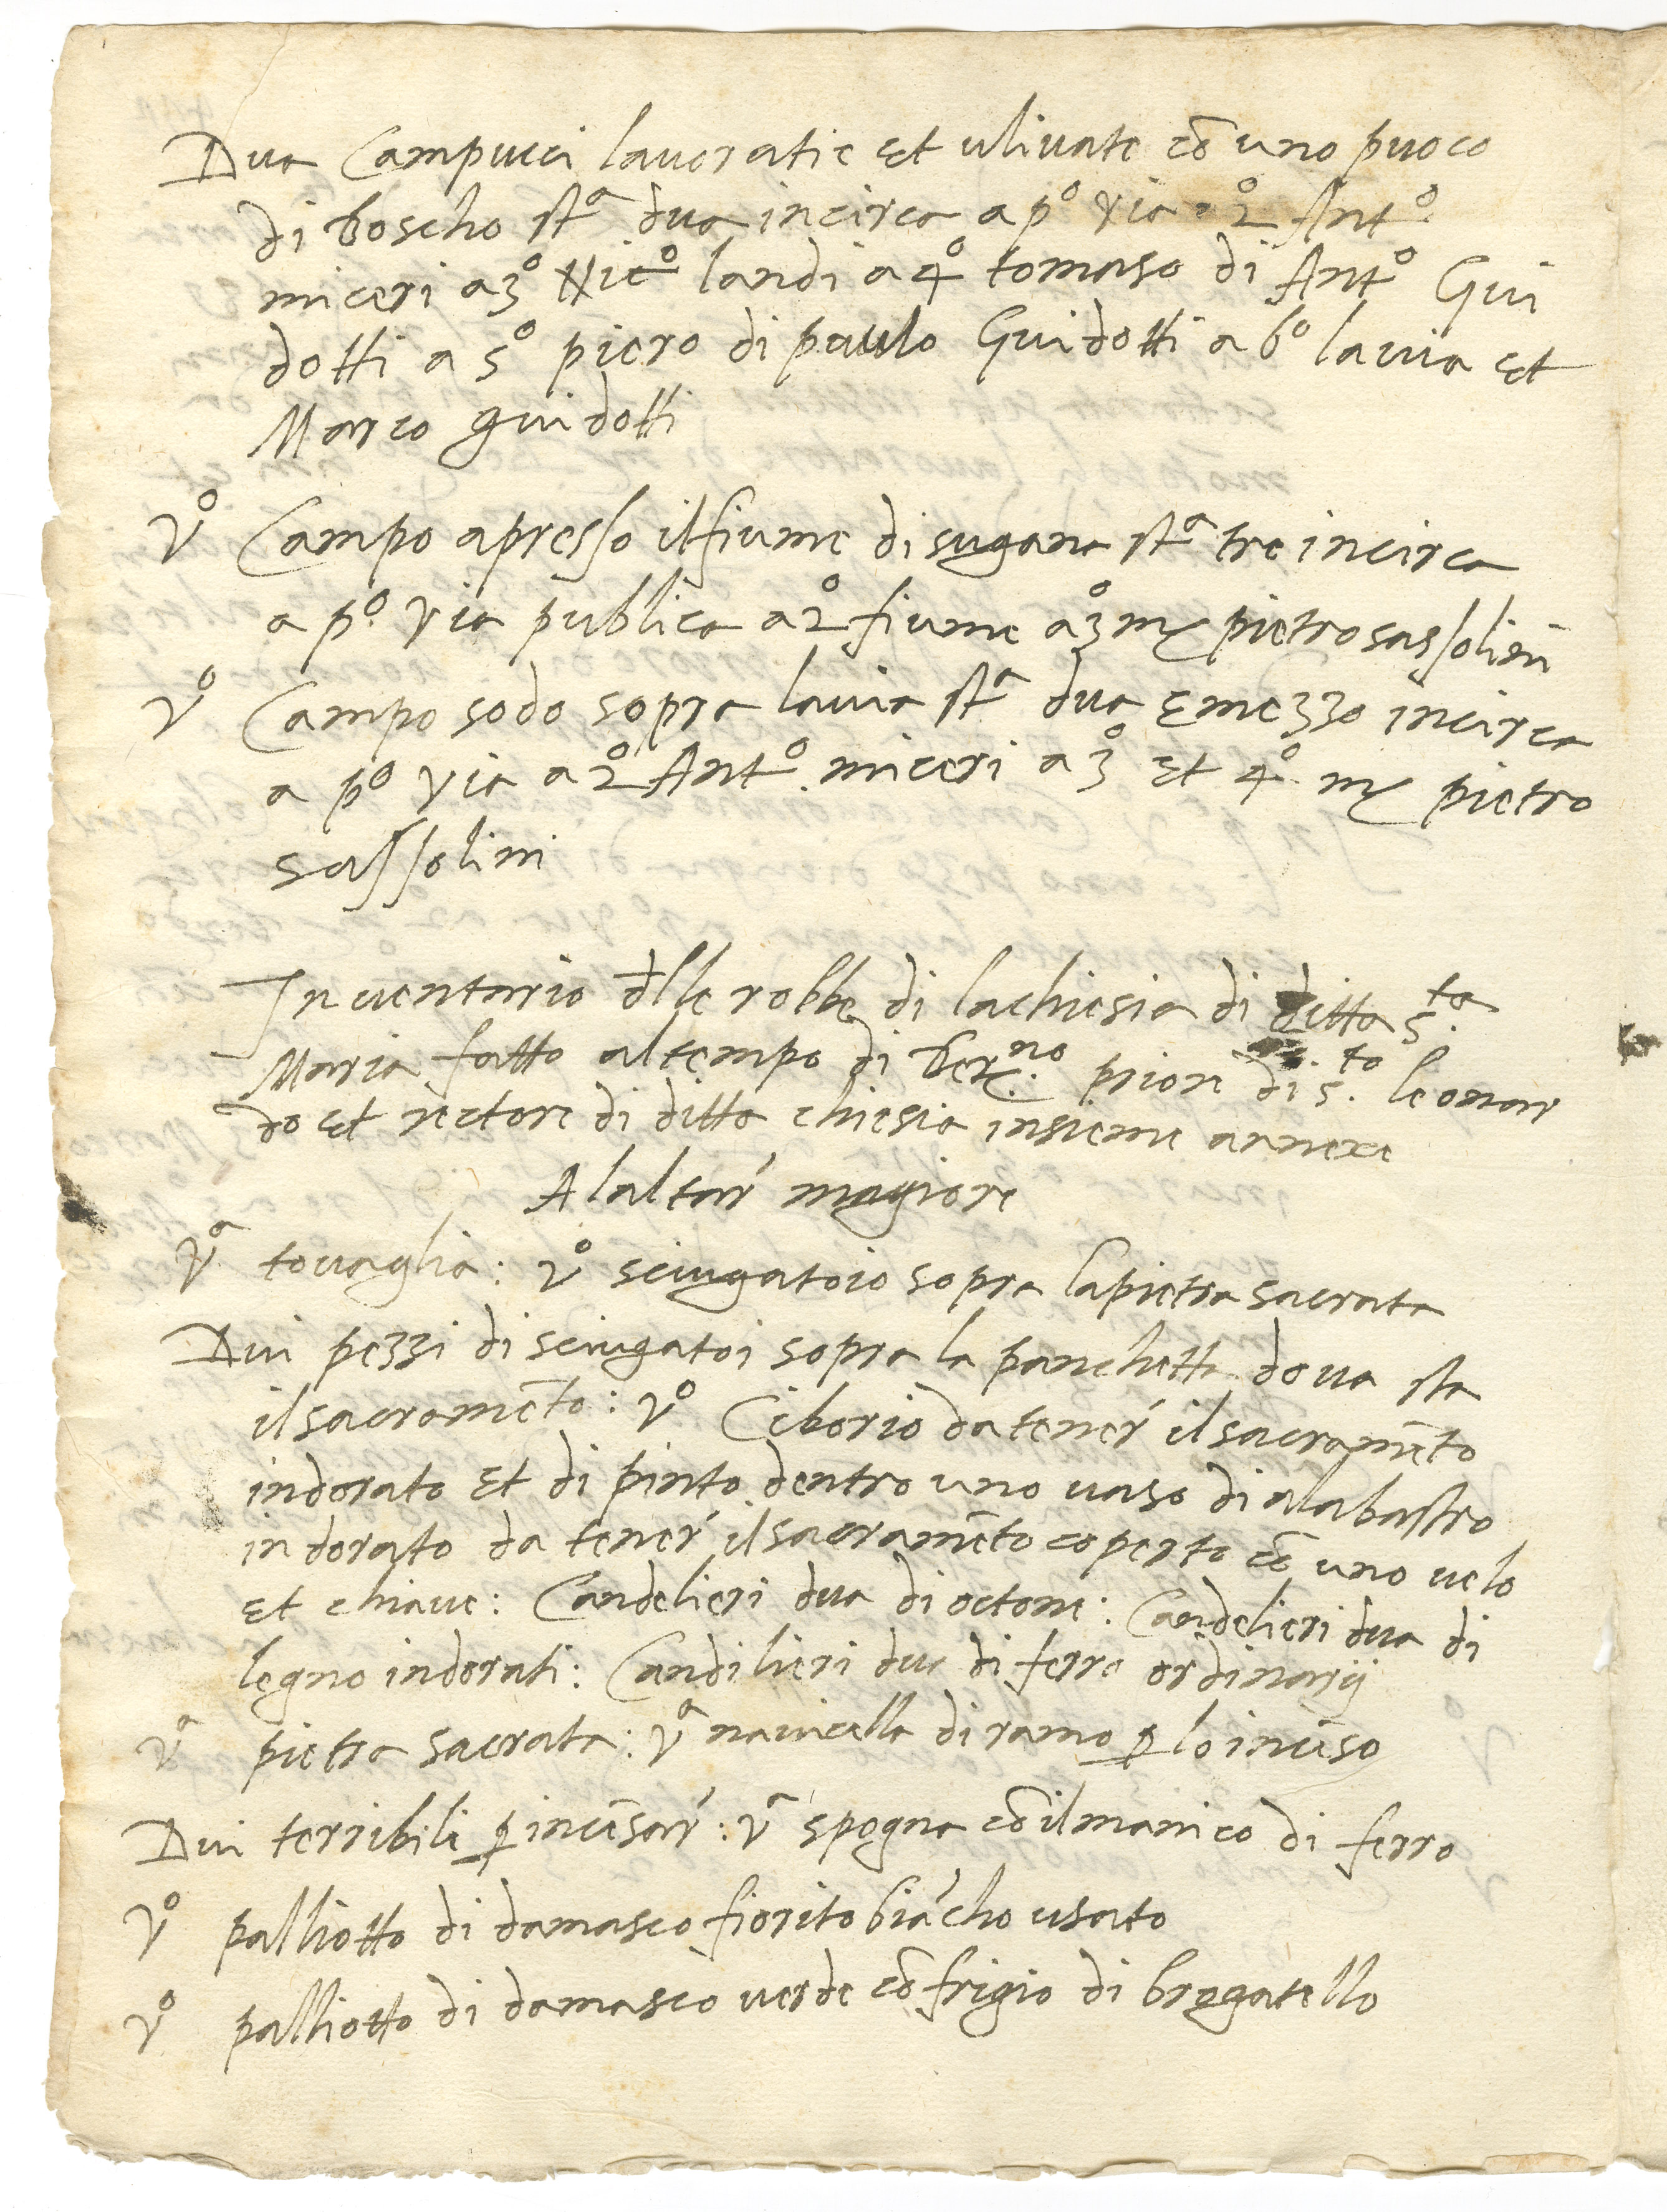 Dua Campucci lauoratie et uliuate cō uno puoco
di boscho stª dua incirca a pº via a 2º Antº
miceri a 3º Nicº landi a 4º tomaso di Antº Gui
dotti a 5º piero di paulo Guidotti a 6º la via et
Marco guidotti
vº Campo apresso il fiume di sugana stª tre incirca
a pº via publica a 2º fiume a 3º mˢ pietro sassolini
vº Campo sodo sopra la via stª dua e mezzo incirca
a pº via a 2º Antº miceri a 3º et 4º mˢ pietro
sassolini
Inuentario dlle robbe di la chiesia di ditta s.ta
Maria fatto al tempo di Ber.no priore di s.to leonar
do et rectore di ditta chiesia insieme annexe
A laltar' magiore
vª touaglia: vº sciugatoio sopra la pietra sacrata
Dui pezzi di sciugatoi sopra la panchetta doua sta
il sacramēto: vº Ciborio da tener' il sacramēto
indorato et di pinto dentro uno uaso di alabastro
indorato da tener' il sacramēto coperto cō uno uelo
et chiaue: Candelieri dua di octone: Candelieri dua di
legno indorati: Candilieri dua di ferro ordinarij
vª pietra sacrata: vª nauicella di ramo ꝑ lo incēso
Dui terribili ꝑ incēsar': vª spogna cō il manico di ferro
vº palliotto di damasco fiorito biācho usato
vº palliotto di damasco uerde cō frigio di brogatello